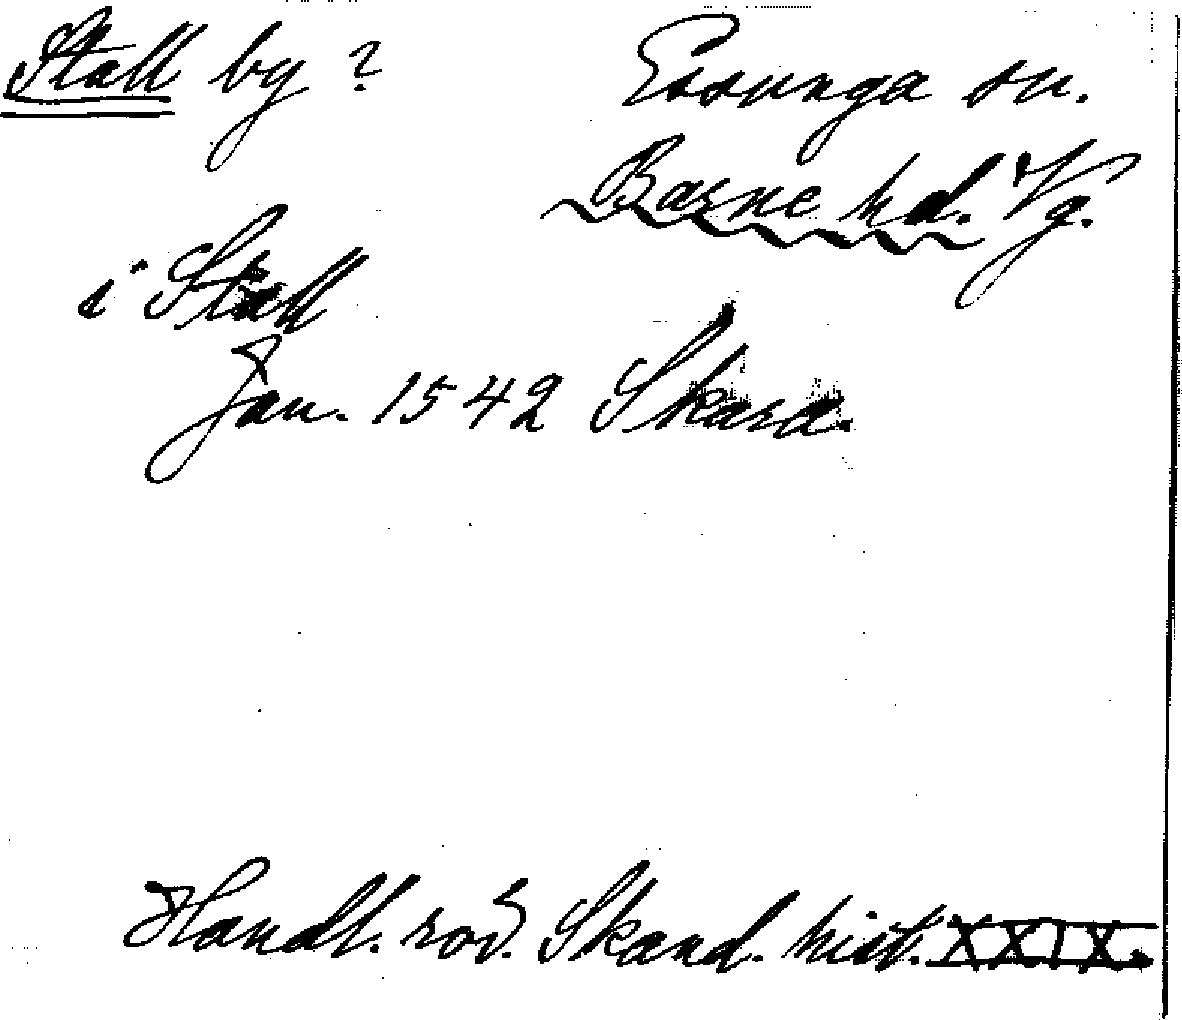 Stall by ? Essunga sn.
Barne hd. Vg.
i Stall
Jan. 1542 Skara.
Handl. rör. Skand. hist. XXIX.